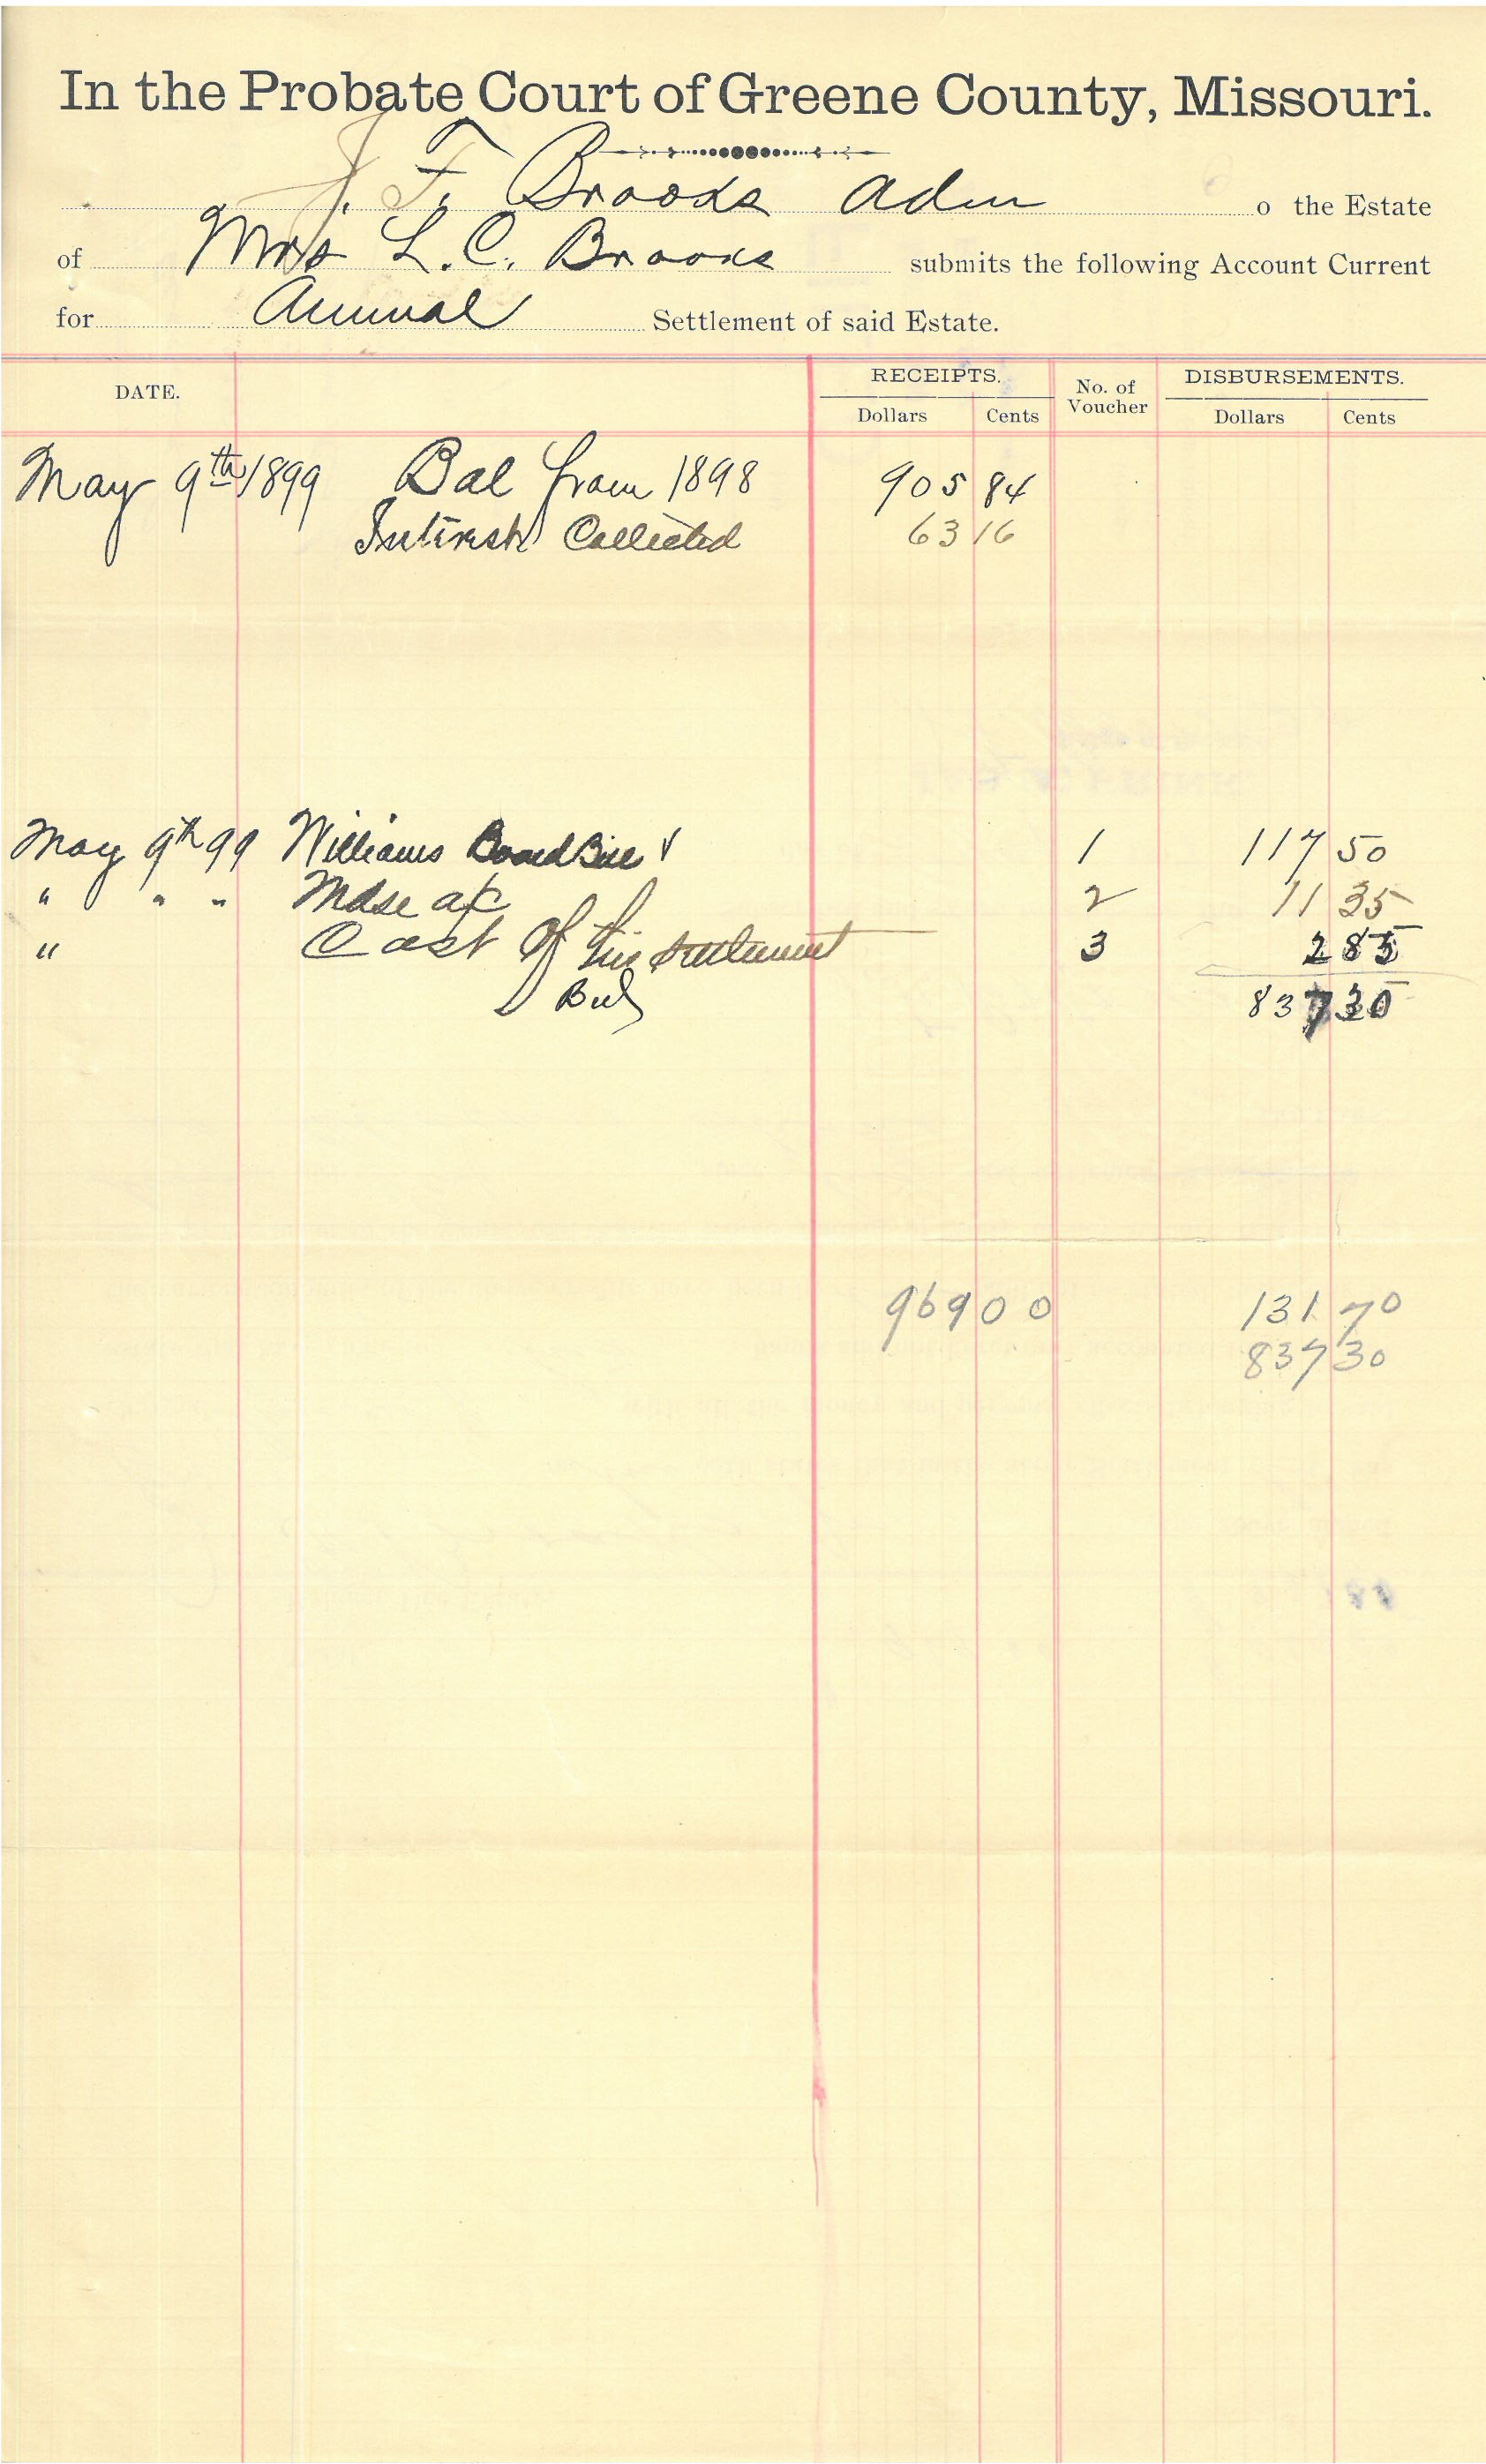 In the Probate Court of Greene County, Missouri.
J. F. Brooks Adm o the Estate
of Mrs L. C. Brooks submits the following Account Current
for Annual Settlement of said Estate.
DATE. RECEIPTS. No. of Voucher DISBURSEMENTS.
Dollars Cents Dollars Cents
May 9th 1899 Bal from 1898 905 84
Interest Collected 63 16
May 9th 99 Williams Board Bill 1 117 50
" " " Mdse a/c 2 11 35
" Cost of this settlement 3 2 85
Bal 837 30
969 00 131 70
837 30